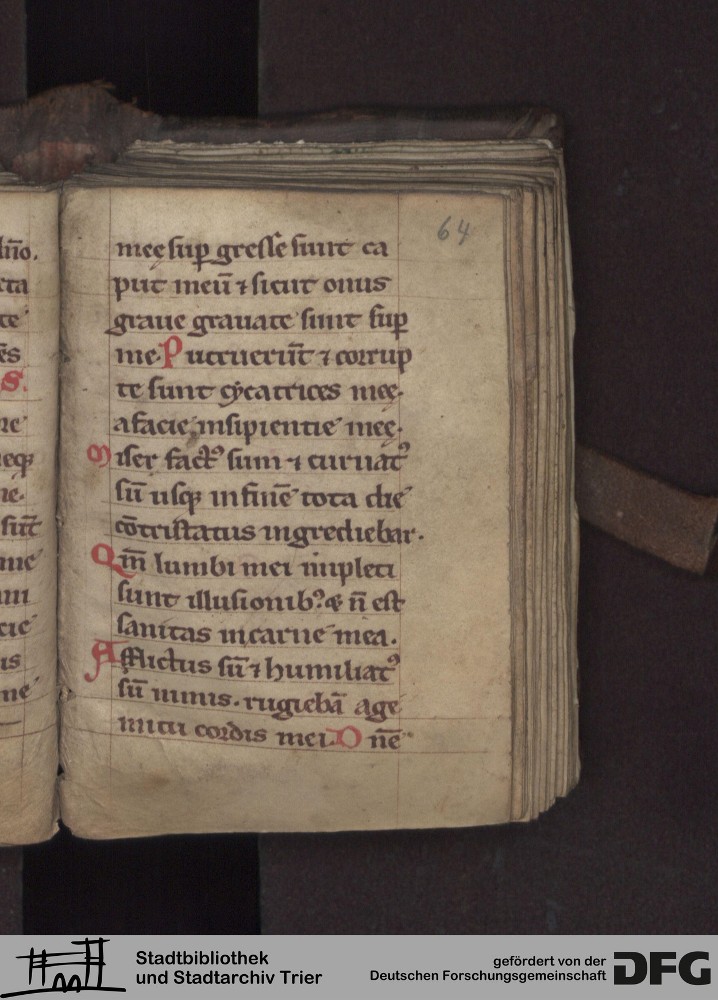 lm̄o.
cta
te
ēs
S.
ne
eqꝫ
ne.
sūt
me
ni
cie
us
ne
64
meę suꝑ gresse sunt ca
put meū ⁊ sicut onus
graue grauate sunt suꝑ
me. Putruerūt ⁊ corrup
te sunt cycatrices meę.
a facie insipientie meę.
Miser fact᾽ sum ⁊ curuat᾽
sū usqꝫ in finē tota die
cōtristatus ingrediebar.
Qm̄ lumbi mei impleti
sunt illusionib᾽. & n̄ est
sanitas in carne mea.
Afflictus sū ⁊ humiliat᾽
sū nimis. rugiebā a ge
mitu cordis mei. D n̄e
Stadtbibliothek
und Stadtarchiv Trier
gefördert von der
Deutschen Forschungsgemeinschaft
DFG